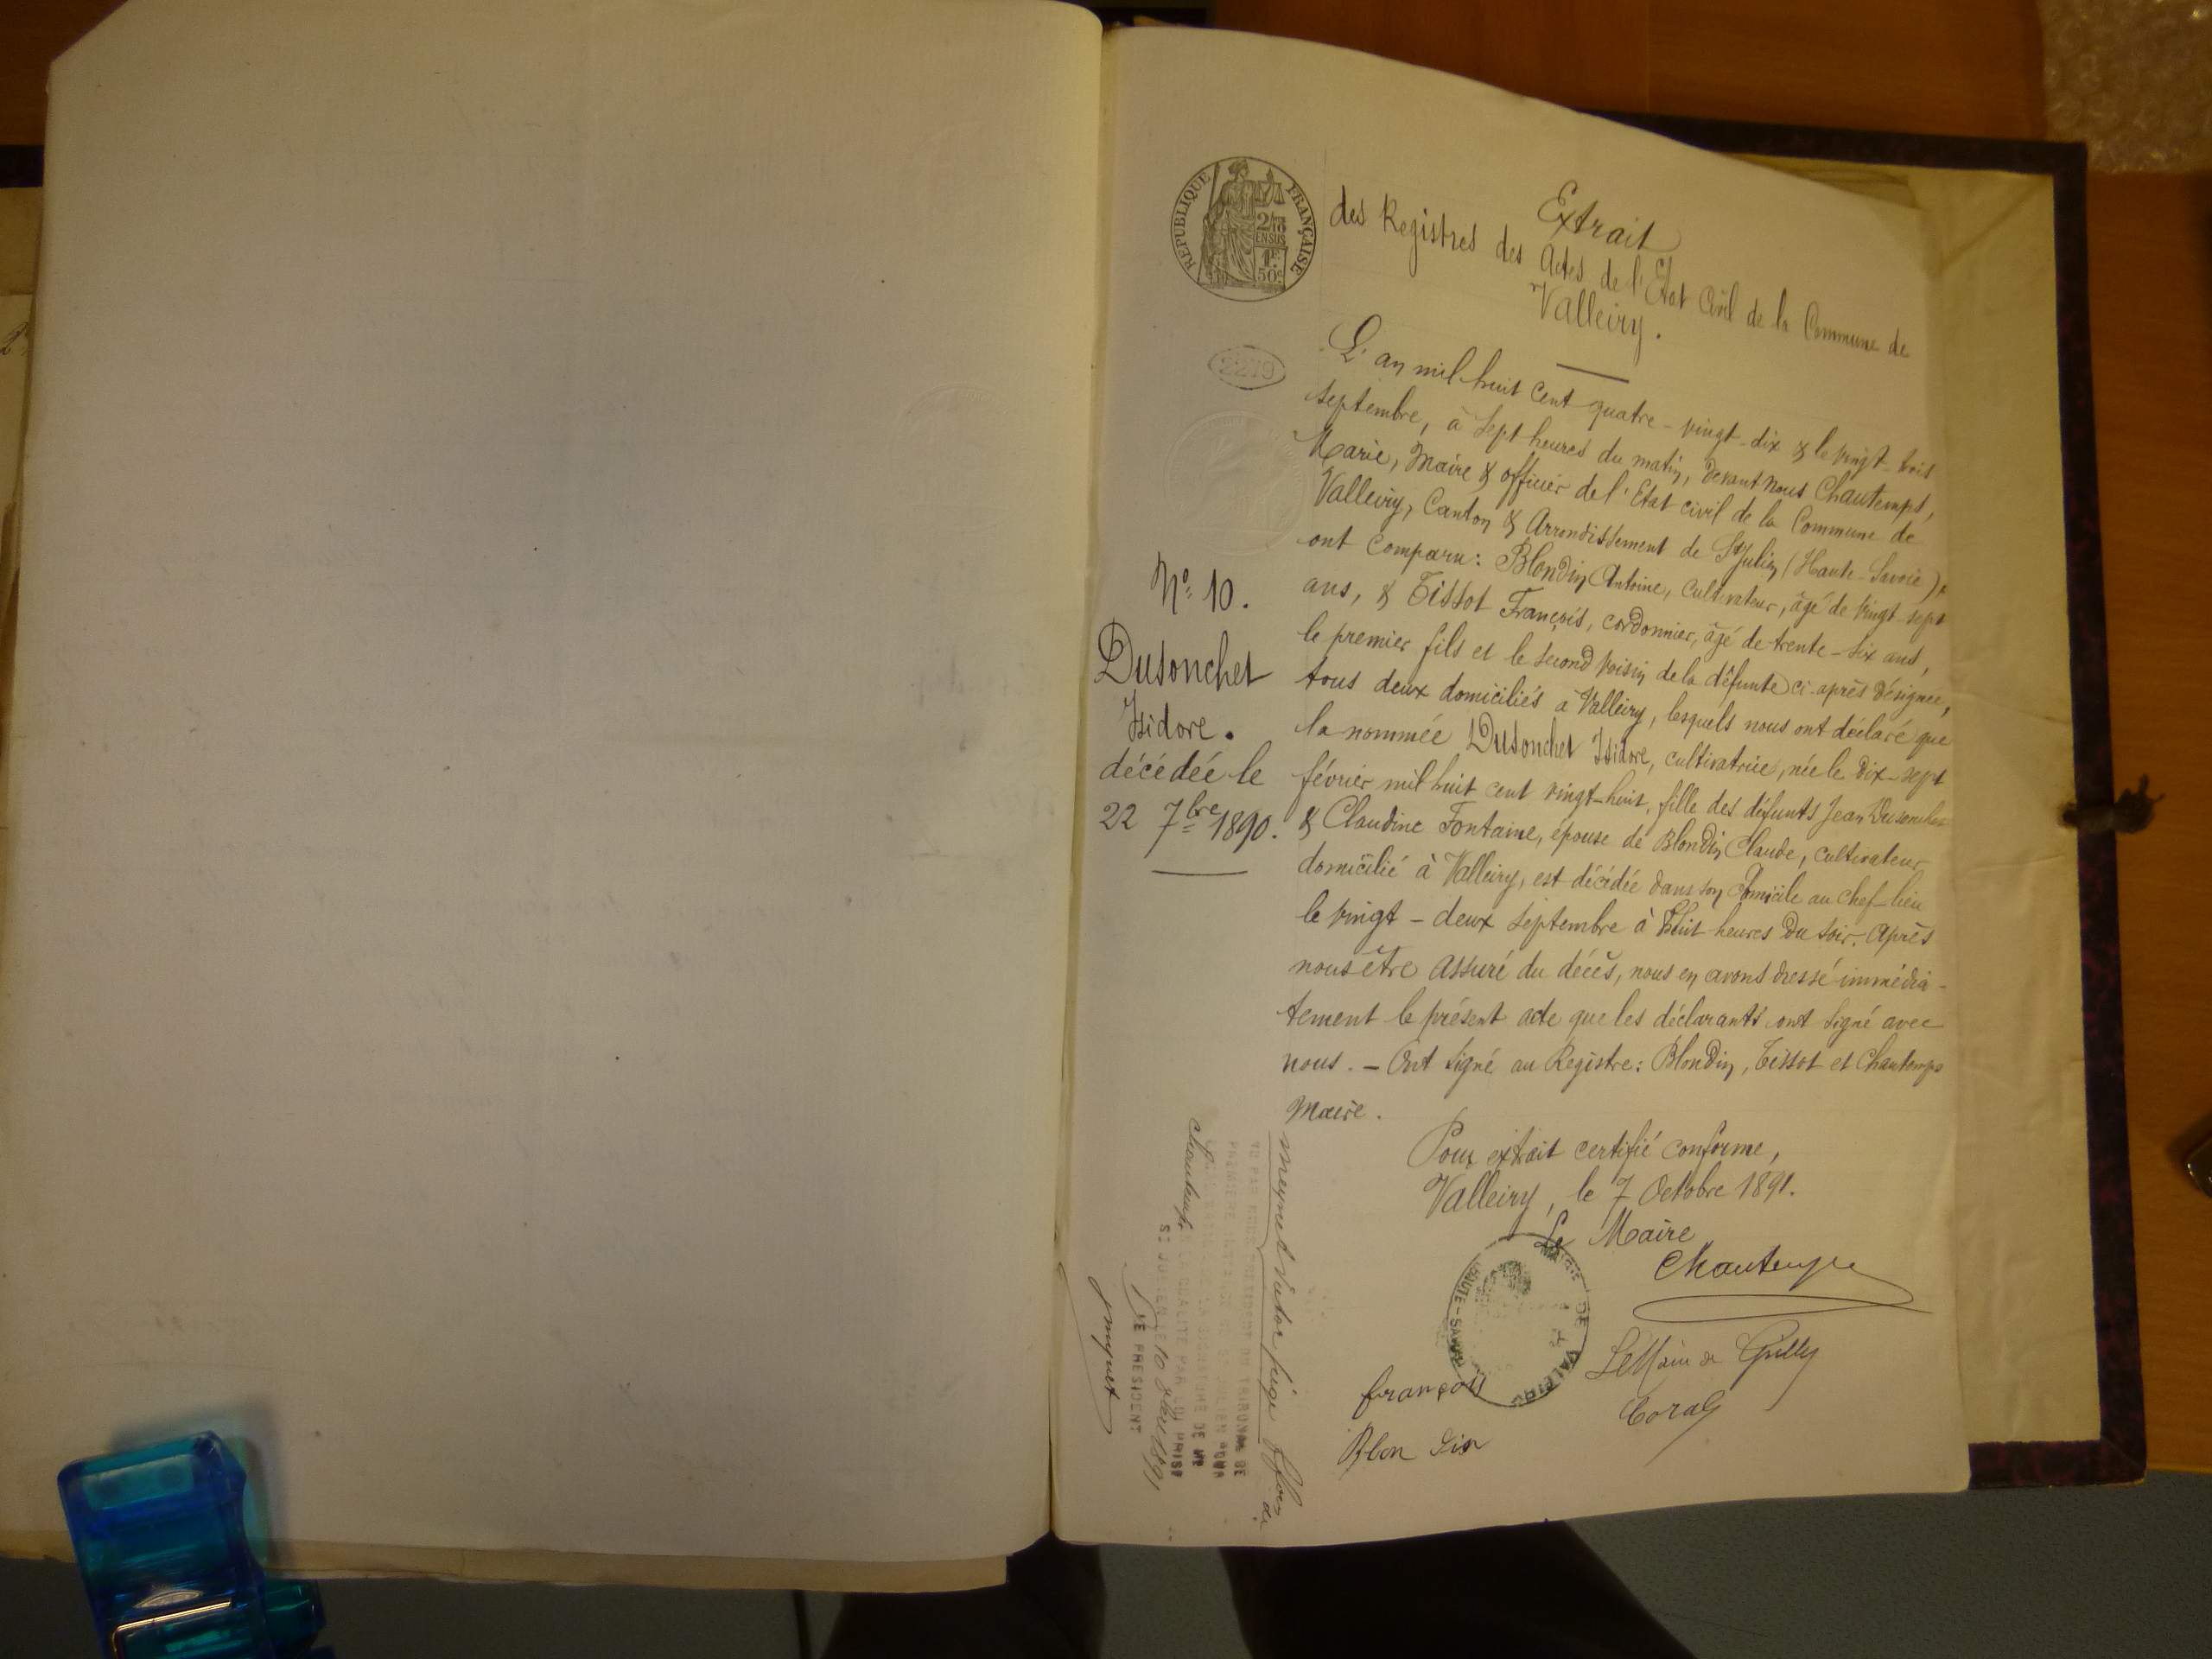 Extrait
des Registres des Actes de l'Etat Civil de la Commune de
Valleiry.
RÉPUBLIQUE FRANÇAISE
2/10
EN SUS
1F
50c
2279
L'an mil huit cent quatre-vingt-dix & le vingt-trois
septembre, à sept heures du matin, devant nous Chautemps,
Marie, Maire & officier de l'Etat civil de la Commune de
Valleiry, Canton & Arrondissement de St Julien (Haute-Savoie),
ont comparu: Blondin Antoine, cultivateur, âgé de vingt-sept
ans, & Tissot François, cordonnier, âgé de trente-six ans,
le premier fils et le second voisin de la défunte ci-après désignée,
tous deux domiciliés à Valleiry, lesquels nous ont déclaré que
la nommée Dusonchet Isidore, cultivatrice, née le dix-sept
février mil huit cent vingt-huit, fille des défunts Jean Dusonchet
& Claudine Fontaine, épouse de Blondin Claude, cultivateur
domicilié à Valleiry, est décédée dans son domicile au chef-lieu
le vingt-deux septembre à huit heures du soir. Après
nous être assuré du décès, nous en avons dressé immédia-
tement le présent acte que les déclarants ont signé avec
nous. - Ont signé au Registre: Blondin, Tissot et Chautemps
Maire.
No 10.
Dusonchet
Isidore.
décédée le
22 7bre 1890.
Pour extrait certifié conforme,
Valleiry, le 7 Octobre 1891.
Le Maire
Chautemps
DE VALLEIRY
HAUTE-SAVOIE
Le Maire de
françois
Blon din
meynet Victor juge
PRESIDENT DU TRIBUNAL DE
PREMIERE INSTANCE DE ST JULIEN POUR
SIGNATURE DE MR
Chautemps
LA QUALITE PAR LUI PRISE
ST JULIEN LE 10 1891
LE PRESIDENT
meynet